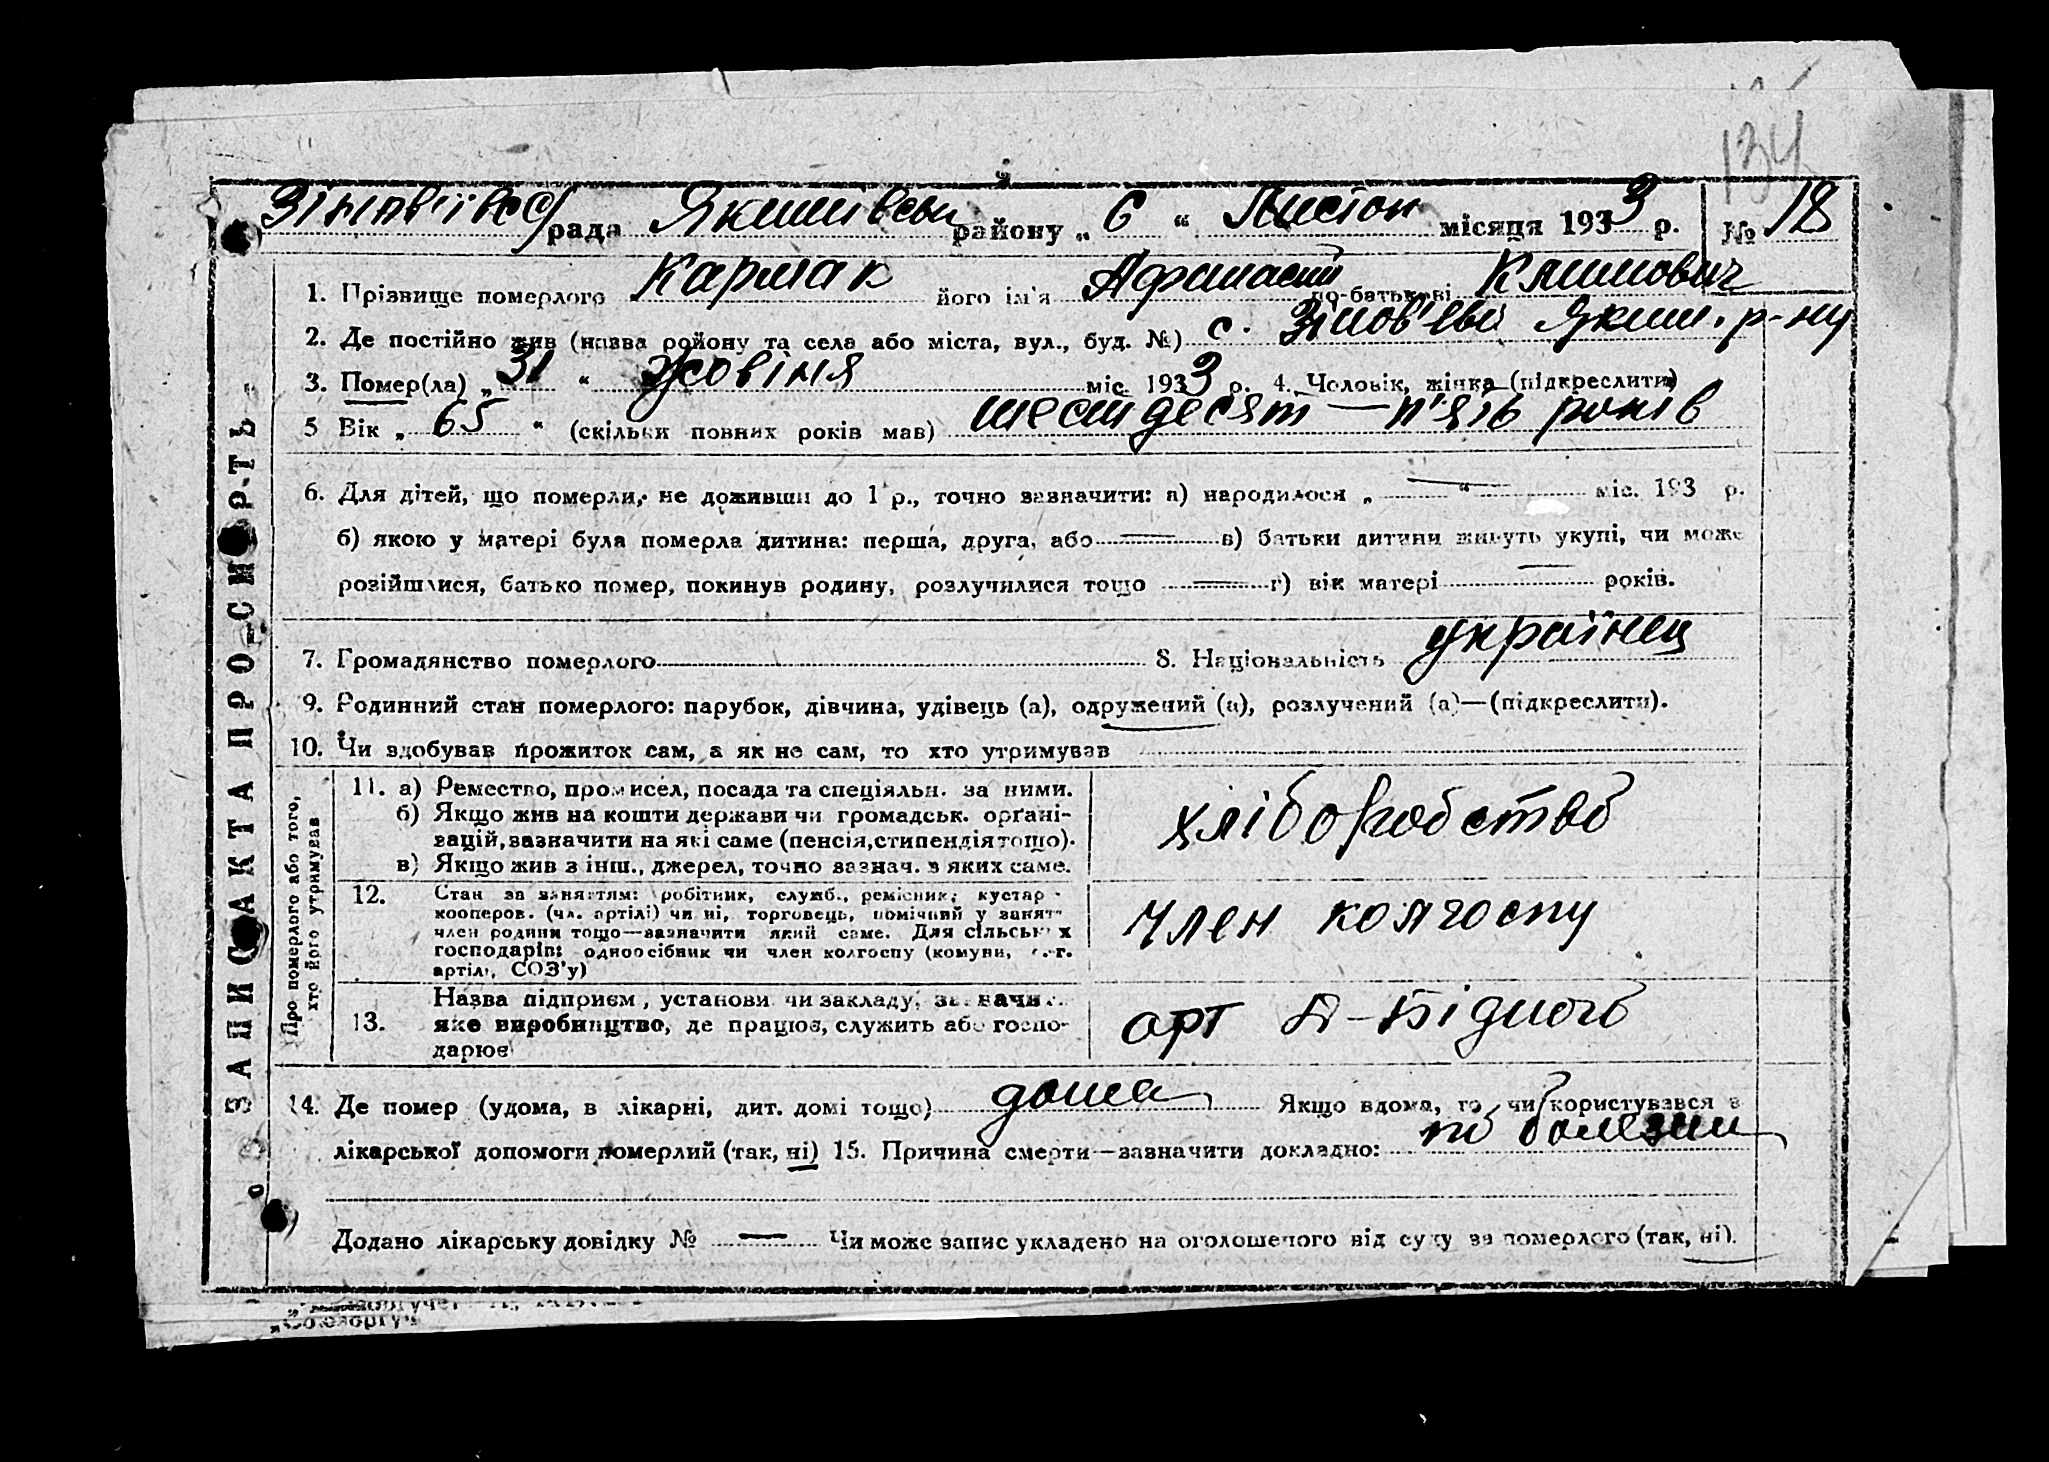 134
Зінов'івс рада Якимівськ району „ 6 “ Листоп місяця 1933 р. № 18
1. Прізвище померлого Кармак його ім'я Афанасий по-батькові Климович
2. Де постійно жив (назва району та села або міста, вул., буд. №) с. Зінов'ева Яким. р-ну
3. Помер(ла) „ 31 “ Жовтня міс. 1933 р. 4. Чоловік, жінка (підкреслити)
5 Вік „ 65 “ (скільки повних років мав) шестдесят — п'ять років
6. Для дітей, що померли, не доживши до 1 р., точно зазначити: а) народилося „ — “ — міс. 193 р.
б) якою у матері була померла дитина: перша, друга, або — в) батьки дитини живуть укупі, чи може
розійшлися, батько помер, покинув родину, розлучилися тощо — г) вік матері — років.
7. Громадянство померлого 8. Національність українец
9. Родинний стан померлого: парубок, дівчина, удівець (а), одружений (а), розлучений (а)—(підкреслити).
10. Чи здобував прожиток сам, а як не сам, то хто утримував
ЗАПИС АКТА ПРО СМЕРТЬ
Про померлого або того,
хто його утримував
11. а) Ремество, промисел, посада та спеціяльн. за ними.
б) Якщо жив на кошти держави чи громадськ. орґані-
зацій, зазначити на які саме (пенсія, стипендія тощо).
в) Якщо жив з інш., джерел, точно зазнач. з яких саме.
хліборобство
12. Стан за заняттям: робітник, служб., ремісник, кустар
кооперов. (чл. артілі) чи ні, торговець, помічний у занят
член родини тощо—зазначити який саме. Для сільських
господарів: одноосібник чи член колгоспу (комуни, с.-г.
артілі, СОЗ'у)
Член колгоспу
13. Назва підприєм, установи чи закладу, зазначи
яке виробництво, де працює, служить або госпо-
дарює
арт Бідного
14. Де помер (удома, в лікарні, дит. домі тощо) дома Якщо вдома, то чи користувався з
лікарської допомоги померлий (так, ні) 15. Причина смерти—зазначити докладно: по болезни
Додано лікарську довідку № — Чи може запис укладено на оголошеного від суду за померлого (так, ні).
„Союзоргуч